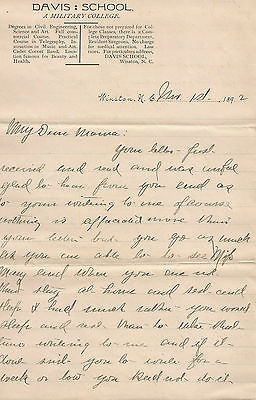 DAVIS : SCHOOL.
A MILITARY COLLEGE.
Degrees in Civil Engineering,
Science and Art. Full com-
mercial Course. Practical
Course in Telegraphy. In-
struction in Music and Art.
Cadet Cornet Band.
Location famous for Beauty and
Health.
For cheses not prepared for
College Classes, there is a Com-
plete Preparatory Department.
Resident Surgeon. No charge
for medical attention. Low
rates. For particulars address
DAVIS SCHOOL,
Winston, N. C.
Winston, N. C. 1st, 1892
My Dear Mama.
Your letter just
received and read and was awful
glad to hear from you and as
to your writing to me of course
nothing is appreciated more than
your letters but you go as much
as you are able to to see
Mary and when you are not
then stay at home and rest and
sleep I had much rather you would
sleep and rest than to take that
time writing to me and if it
does suit you to write for a
week or how you need not do it.